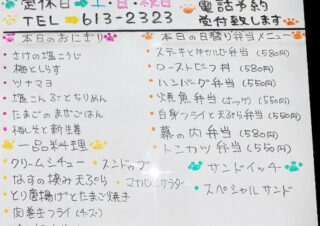 定休日 土・日・祝日
電話予約
TEL 613-2323 受付致します
本日のおにぎり
さけの塩こうじ
梅としらす
ツナマヨ
塩こんぶとちりめん
たまごのまぜごはん
梅しそと新生姜
一品料理
クリームシチュー
スンドゥブ
なすの挟み天ぷら
マカロニサラダー
とり唐揚げとたまご焼き
肉巻きフライ(チーズ)
本日の日替り弁当メニュー
ステーキと牛カルビ弁当(580円)
ローストビーフ丼(580円)
ハンバーグ弁当(550円)
焼魚弁当(ホッケ)(550円)
白身フライと天ぷら弁当(550円)
幕の内弁当(580円)
トンカツ弁当(550円)
サンドイッチ
スペシャルサンド